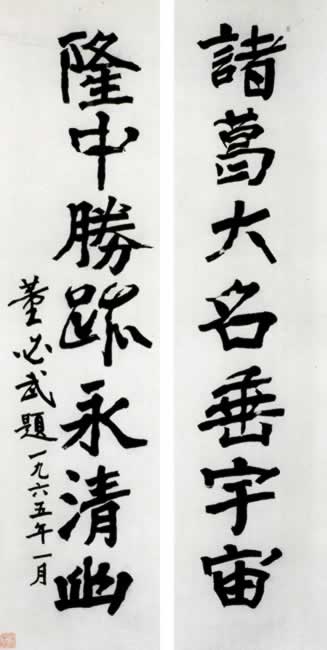 諸葛大名垂宇宙
隆中勝跡永清幽
董必武題一九六五年一月